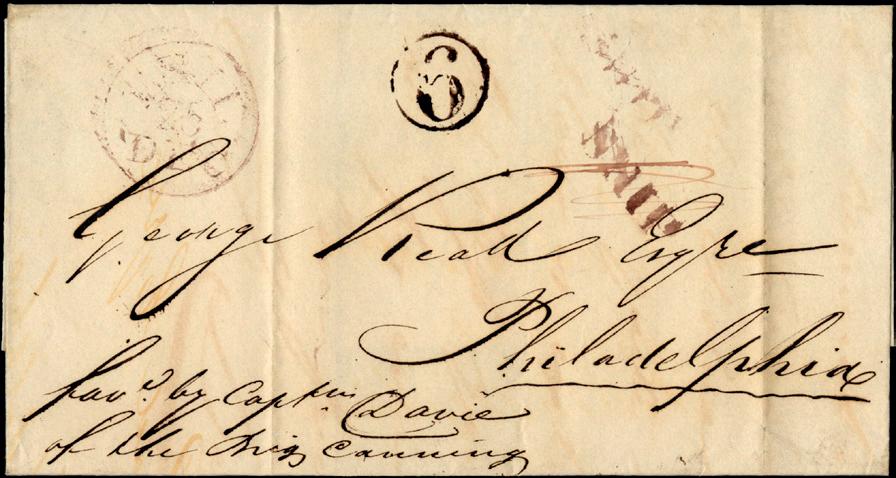 6
George Read Esqre
Philadelphia
favd. by Captn Davie
of the Brig Canning